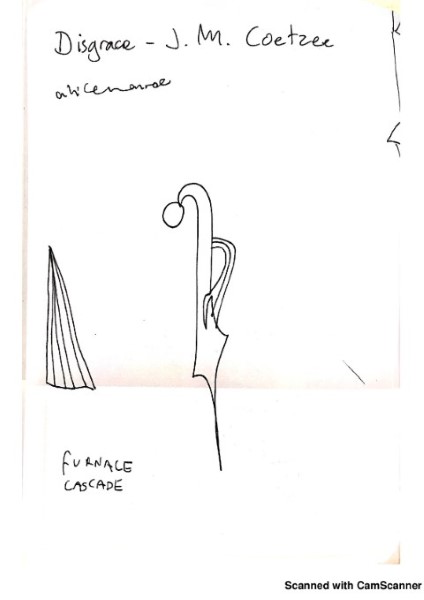 Disgrace - J. M. Coetzee
FURNACE
CASCADE
Scanned with CamScanner